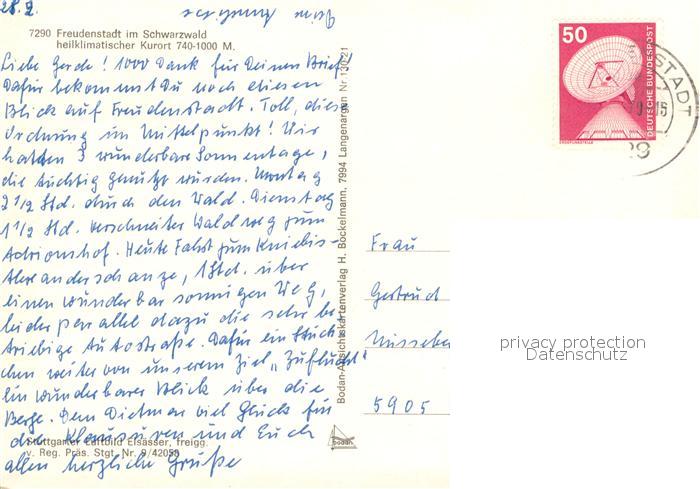 28.2.
7290 Freudenstadt im Schwarzwald
heilklimatischer Kurort 740-1000 M.
Liebe Gerda! 1000 Dank für Deinen Brief!
Dafür bekommst Du noch diesen
Blick auf Freudenstadt. Toll, diese
Ordnung im Mittelpunkt! Wir
hatten 3 wunderbare Sonnentage,
die tüchtig genutzt wurden. Montag
2 1/2 Std. durch den Wald. Dienstag
1 1/2 Std. verschneiter Waldweg zum
Heute Fahrt zum Kniebis-
Alexanderschanze, 1 Std. über
einen wunderbar sonnigen Weg,
leider parallel dazu die sehr be-
triebige Autostraße. Dafür ein Stück-
chen weiter von unserem Ziel "Zuflucht"
Ein wunderbarer Blick über die
Berge. Dem Dietmar viel Glück für
die Klausuren und Euch
allen herzliche Grüße
Stuttgarter Luftbild Elsässer, freigg.
v. Reg. Präs. Stgt. Nr. 9/42058
Bodan-Ansichtskartenverlag H. Bockelmann, 7994 Langenargen Nr 130/21
bodan
50
DEUTSCHE BUNDESPOST
ERDEFUNKSTELLE
STADT
Frau
Gertrud
5905
privacy protection
Datenschutz